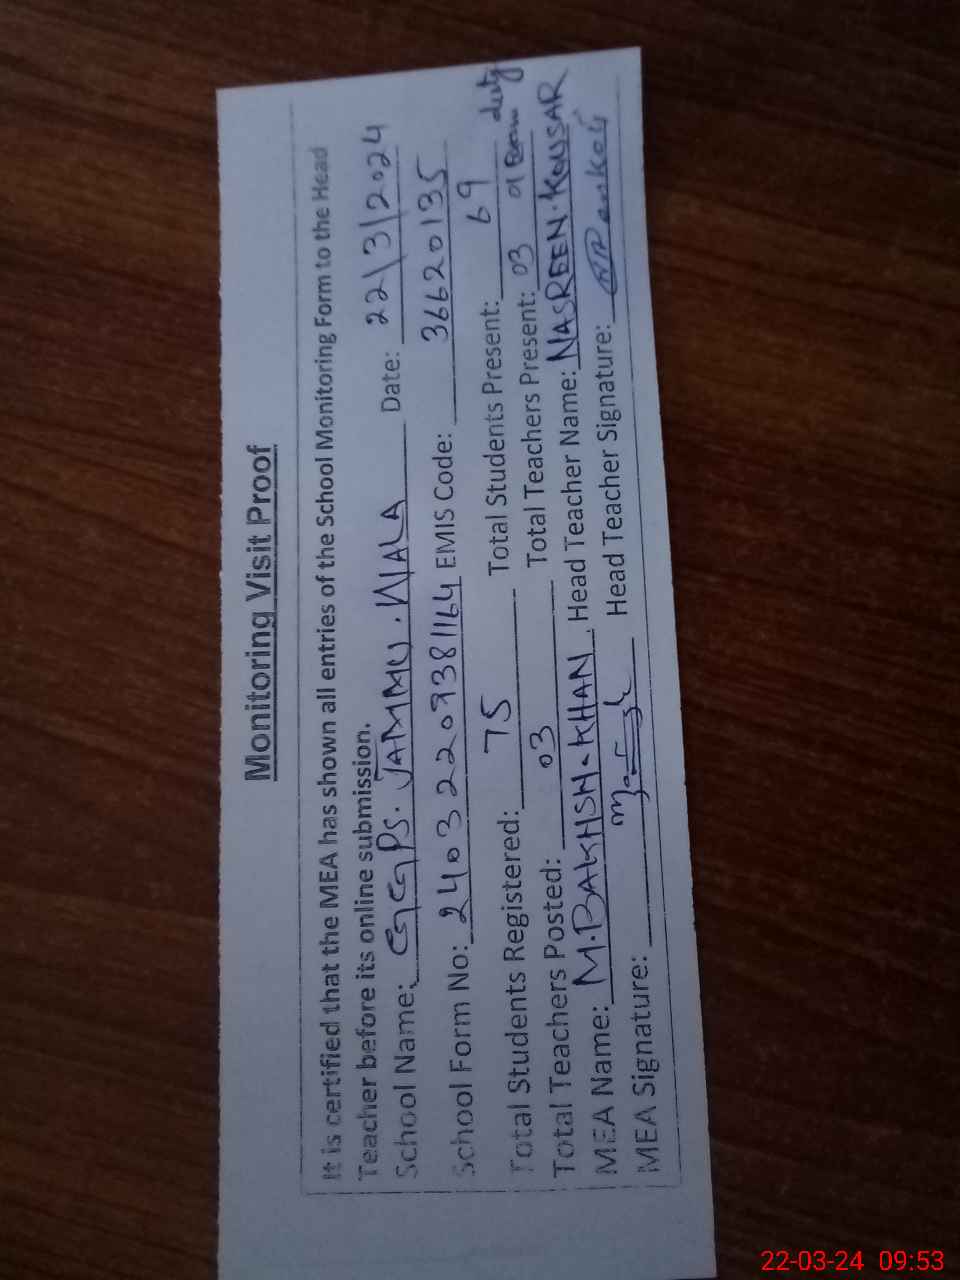 Monitoring Visit Proof
It is certified that the MEA has shown all entries of the School Monitoring Form to the Head
Teacher before its online submission.
School Name: GGPS. JAMMU. WALA Date: 22/3/2024
School Form No: 24032209381164 EMIS Code: 36620135
Total Students Registered: 75 Total Students Present: 69
Total Teachers Posted: 03 Total Teachers Present: 03 duty
MEA Name: M. BAKHSH. KHAN Head Teacher Name: NASREEN. KOUSAR
MEA Signature: Head Teacher Signature:
22-03-24 09:53